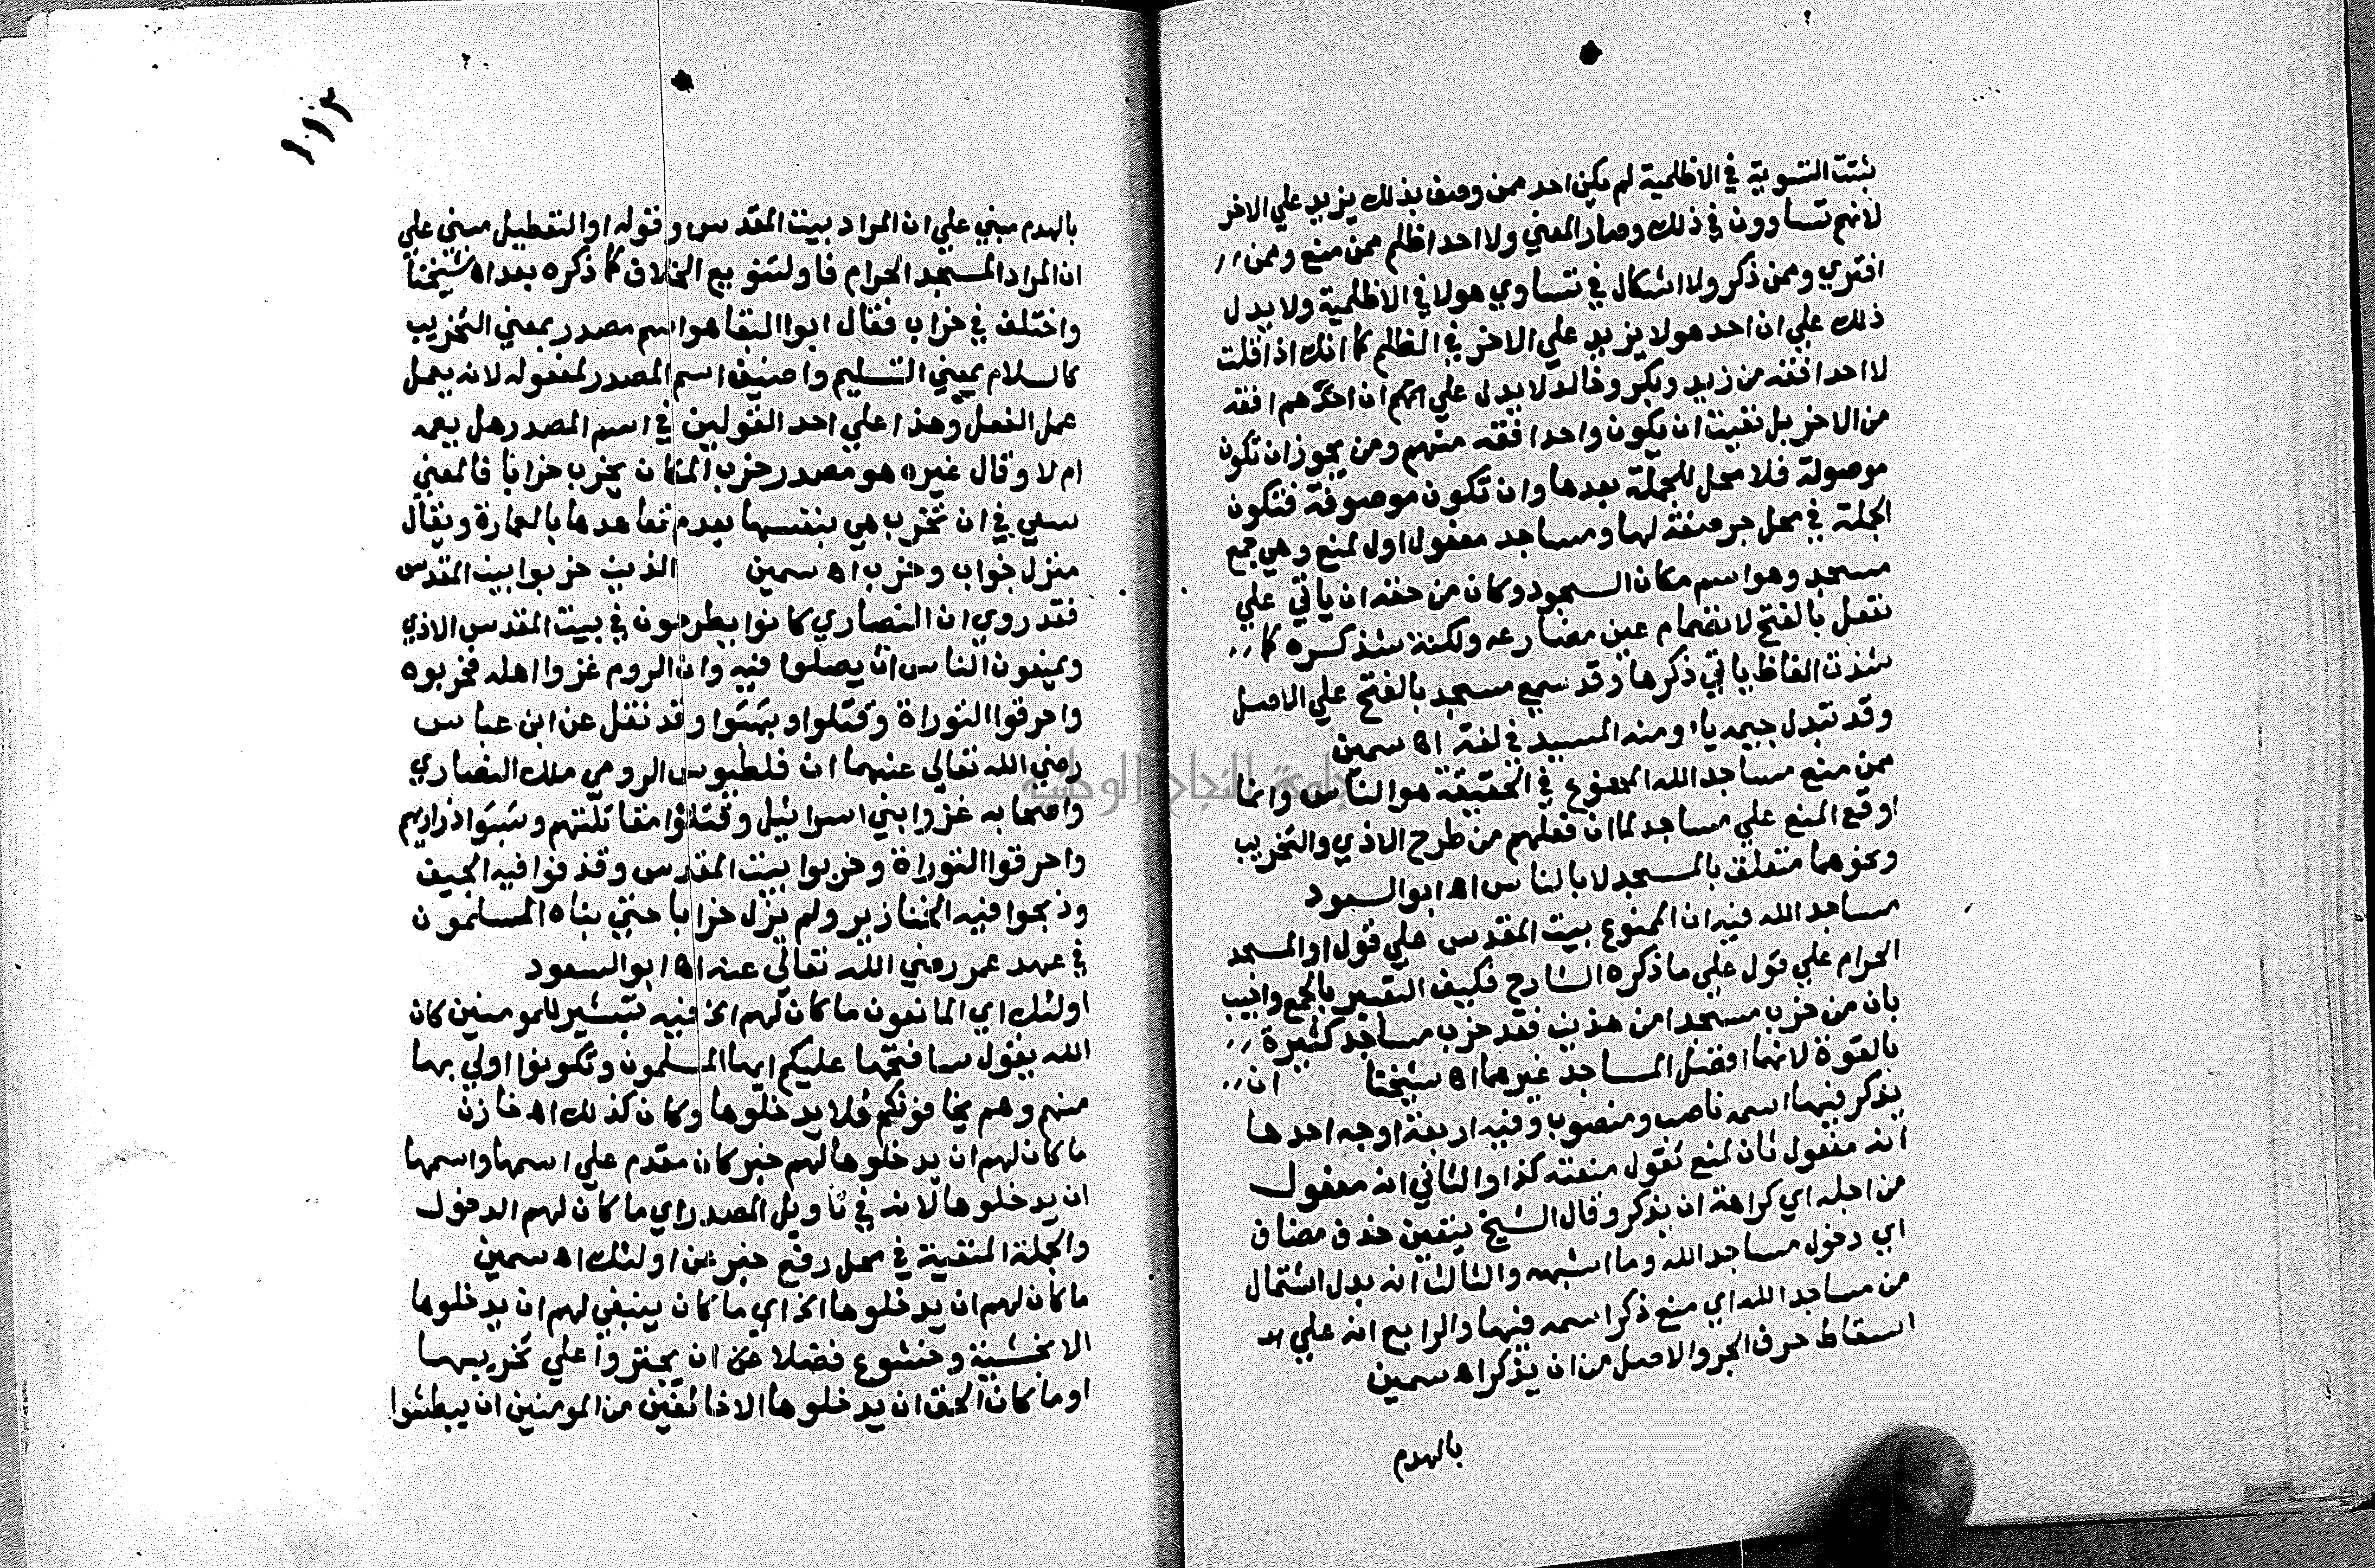 ثبتت التسوية في الاظلمية لم يكن احد ممن وصف بذلك يزيد علي الاخر
لانهم تساوون في ذلك وصار المعني ولا احد اظلم ممن منع وممن
افتري وممن ذكر ولا اشكال في تساوي هولا في الاظلمية ولا يدل
ذلك علي ان احد هولا يزيد علي الاخر في الظلم كما انك اذا قلت
لا احد افقه من زيد وبكر وخالد لا يدل علي انهم ان احدهم افقه
من الاخر بل نفيت ان يكون واحد افقه منهم ومن يجوز ان تكون
موصولة فلا محل للجملة بعدها وان تكون موصوفة فتكون
الجملة في محل جر صفة لها ومساجد مفعول اول لمنع وهي جمع
مسجد وهو اسم مكان السجود وكان من حقه ان ياتي علي
تفعل بالفتح لانضمام عين مضارعه ولكنة شذ كسره كما
شذت الفاظ ياتي ذكرها وقد سمع مسجد بالفتح علي الاصل
وقد تبدل جيمه ياء ومنه المسيد في لغة اه سمين
ممن منع مساجد الله الممنوع في الحقيقة هو الناس وانما
اوقع المنع علي مساجد لما ان فعلهم من طرح الاذي والتخريب
ونحوهما متعلق بالمسجد لا بالناس اه ابو السعود
مساجد الله فيه ان الممنوع بيت المقدس علي قول او المسجد
الحرام علي قول علي ما ذكره الشارح فكيف التعبير بالجمع واجيب
بان من خرب مسجدا من هذين فقد خرب مساجد كثيرة
بالقوة لانهما افضل المساجد غيرهما اه شيخنا ان
يذكر فيها اسمه ناصب ومنصوب وفيه اربعة اوجه احدها
انه مفعول ثان لمنع تقول منعته كذا والثاني انه مفعول
من اجله اي كراهة ان يذكر وقال الشيخ يتعين حذف مضاف
اي دخول مساجد الله وما اشبهه والثالث انه بدل اشتمال
من مساجد الله اي منع ذكر اسمه فيها والرابع انه علي
اسقاط حرف الجر والاصل من ان يذكر اه سمين
بالهدم
١١٣
بالهدم مبني علي ان المراد بيت المقدس وقوله او التعطيل مبني علي
ان المراد المسجد الحرام فاو لتنويع الخلاف كما ذكره بعد اه شيخنا
واختلف في خراب فقال ابو البقا هو اسم مصدر بمعني التخريب
كالسلام بمعني التسليم واضيف اسم المصدر لمفعوله لانه يعمل
عمل الفعل وهذا علي احد القولين في اسم المصدر هل يعمل
ام لا وقال غيره هو مصدر خرب المكان يخرب خرابا فالمعني
سعي في ان تخرب هي بنفسها بعدم تعاهدها بالعمارة ويقال
منزل خراب وخرب اه سمين الذين خربوا بيت المقدس
فقد روي ان النصاري كانوا يطرحون في بيت المقدس الاذي
ويمنعون الناس ان يصلوا فيه وان الروم غزوا اهله فخربوه
واحرقوا التوراة وقتلوا وسبوا وقد نقل عن ابن عباس
رضي الله تعالي عنهما ان فلطيوس الرومي ملك النصاري
واصحابه غزوا بني اسرائيل وقتلوا مقاتلتهم وسبوا ذراريهم
واحرقوا التوراة وخربوا بيت المقدس وقذفوا فيه الجيف
وذبحوا فيه الخنازير ولم يزل خرابا حتي بناه المسلمون
في عهد عمر رضي الله تعالي عنه اه ابو السعود
اولئك اي المانعون ما كان لهم الخ فيه تبشير للمومنين كان
الله يقول سافتحها عليكم ايها المسلمون وتكونوا اولي بها
منهم وهم يخافونكم فلا يدخلوها وكان كذلك اه خازن
ما كان لهم ان يدخلوها لهم خبر كان مقدم علي اسمها واسمها
ان يدخلوها لانه في تاويل المصدر اي ما كان لهم الدخول
والجملة المنفية في محل رفع خبر عن اولئك اه سمين
ما كان لهم ان يدخلوها الخ اي ما كان ينبغي لهم ان يدخلوها
الا بخشية وخشوع فضلا عن ان يجتروا علي تخريبها
او ما كان الحق ان يدخلوها الا خائفين من المومنين ان يبطشوا
جامعة النجاح الوطنية